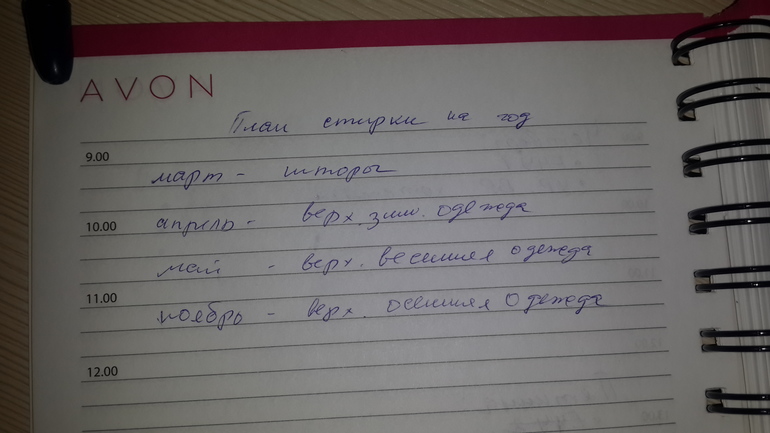 AVON
План стирки на год
9.00
март - шторы
10.00
апрель - верх. зим. одежда
май - верх. весенняя одежда
11.00
ноябрь - верх. осенняя одежда
12.00